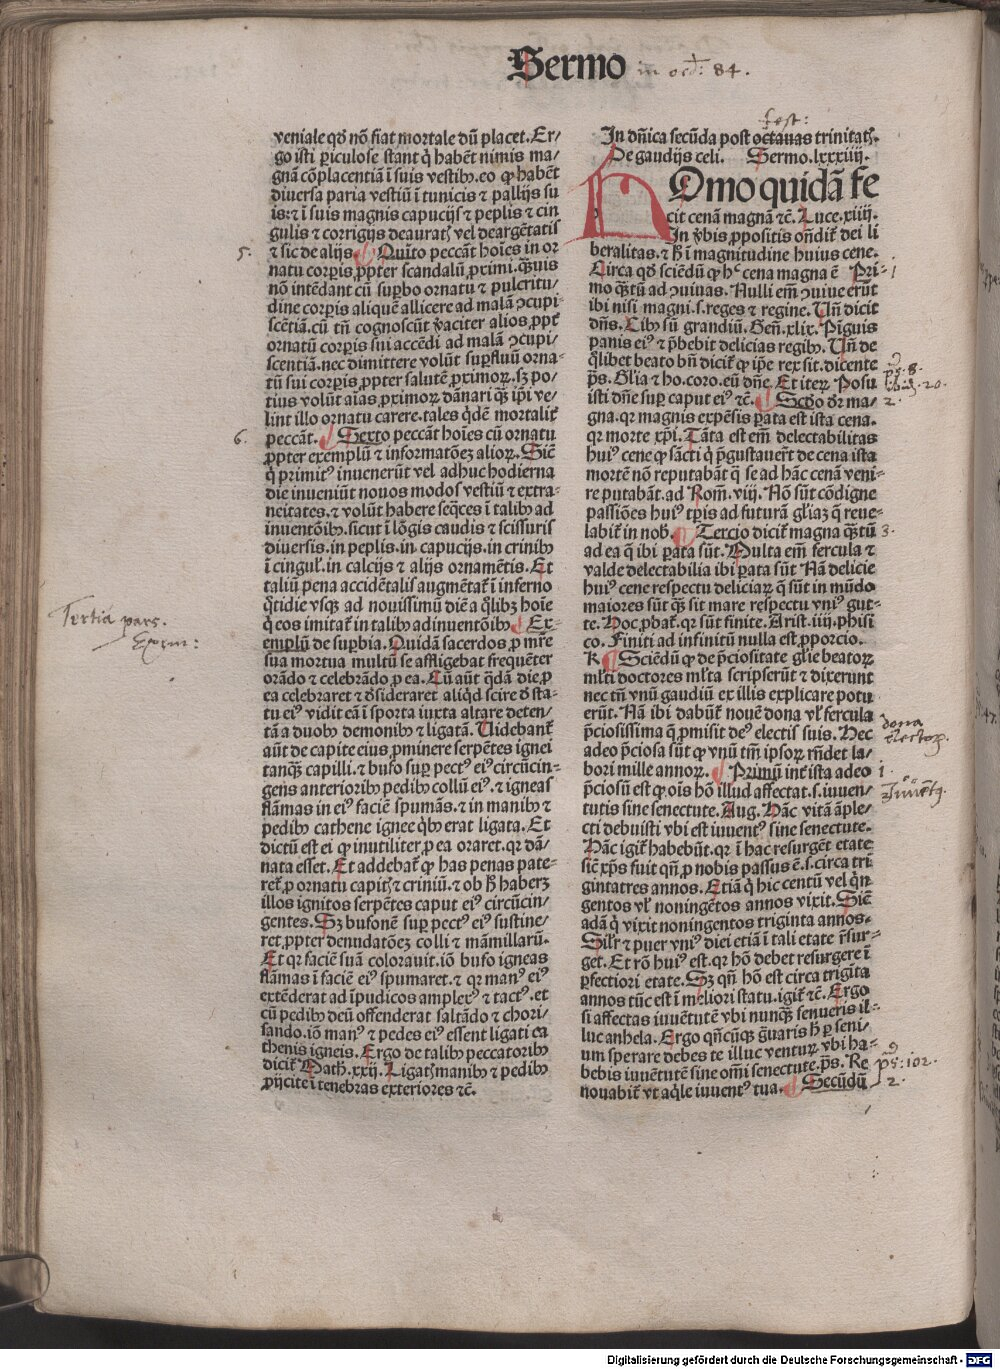 Sermo in oct: 84.
veniale qđ nō fiat mortale dū placet. Er/
go isti ꝑiculose stant q̇ habēt nimis ma/
gnā cōplacentiā ī suis vestibꝫ. eo ꝙ habēt
diuersa paria vestiū ī tunicis ⁊ pallijs su
is: ⁊ ī suis magnis capucijs ⁊ peplis ⁊ cin
gulis ⁊ corrigijs deauratꝭ vel deargētatis
5. ⁊ sic de alijs. Quīto peccāt hoīes in or
natu corꝑis ꝓpter scandalū ꝓximi. qꝫuis
nō intēdant cū suꝑbo ornatu ⁊ pulcritu/
dine corꝑis aliquē allicere ad malā ↄcupi
scētiā. cū tñ cognoscūt v̄aciter alios ꝓpt̄
ornatū corꝑis sui accēdi ad malā ↄcupi/
scentiā. nec dimittere volūt suꝑfluū orna-
tū sui corꝑis ꝓpter salutē ꝓximoꝝ. sꝫ po/
tius volūt aīas ꝓximoꝝ dānari qꝫ ip̄i ve/
lint illo ornatu carere. tales qͥdē mortalit̄
6. peccāt. Sexto peccāt hoīes cū ornatu
ꝓpter exemplū ⁊ informatōeꝫ alioꝝ. Sic̄
q̇ primitꝰ inuenerūt vel adhuc hodierna
die inueniūt nouos modos vestiū ⁊ extra-
neitates. ⁊ volūt habere seq̄ces ī talibꝫ ad
inuentōibꝫ. sicut ī lōgis caudis ⁊ scissuris
diuersis. in peplis. in capucijs. in crinibꝫ
ī cingul̄. in calcijs ⁊ alijs ornamētis. Et
taliū pena accidētalis augmētat̄ ī inferno
qͦtidie vsqꝫ ad nouissimū diē a qͦlibꝫ hoīe
Tertia pars. q̇ eos imitat̄ in talibꝫ adinuentōibꝫ. Ex-
Exem: emplū de suꝑbia. Quidā sacerdos ꝓ mr̄e
sua mortua multū se affligebat frequēter
orādo ⁊ celebrādo ꝓ ea. Cū aūt qͣdā die ꝓ
ea celebraret ⁊ ꝺsideraret aliqͥd scire ꝺ sta-
tu eiꝰ vidit eā ī sporta iuxta altare deten/
tā a duobꝫ demonibꝫ ⁊ ligatā. Videbant̄
aūt de capite eius ꝓminere serpētes ignei
tanqꝫ capilli. ⁊ bufo suꝑ pectꝰ eiꝰ circūcin-
gens anterioribꝫ pedibꝫ collū eiꝰ. ⁊ igneas
flāmas in eiꝰ faciē spumās. ⁊ in manibꝫ ⁊
pedibꝫ cathene ignee qͥbꝫ erat ligata. Et
dictū est ei ꝙ inutiliter ꝓ ea oraret. qꝛ dā/
nata esset. Et addebat̄ ꝙ has penas pate-
ret̄ ꝓ ornatu capitꝭ ⁊ criniū. ⁊ ob ħ haberꝫ
illos ignitos serpētes caput eiꝰ circūcin/
gentes. Sꝫ bufonē suꝑ pectꝰ eiꝰ sustine/
ret ꝓpter denudatōeꝫ colli ⁊ māmillarū.
Et qꝛ faciē suā colorauit. iō bufo igneas
flāmas ī faciē eiꝰ spumaret. ⁊ qꝛ manꝰ eiꝰ
extēderat ad īpudicos amplexꝰ ⁊ tactꝰ. et
cū pedibꝫ deū offenderat saltādo ⁊ chori/
sando. iō manꝰ ⁊ pedes eiꝰ essent ligati ca
thenis igneis. Ergo de talibꝫ peccatoribꝫ
dicit̄ Math̄. xxij. Ligatꝭ manibꝫ ⁊ pedibꝫ
ꝓijcite ī tenebras exteriores ⁊c̄.
fest:
In dn̄ica secūda post octauas trinitatꝭ.
De gaudijs celi. Sermo. lxxxiiij.
HOmo quidā fe
cit cenā magnā ⁊c̄. Luce. xiiij.
In v̄bis ꝓpositis on̄dit̄ dei li
beralitas. ⁊ ħ ī magnitudine huius cene.
Circa qđ sciēdū ꝙ hͨ cena magna ē Pri- 1
mo qꝫtū ad ↄuiuas. Nulli em̄ ↄuiue erūt
ibi nisi magni. s. reges ⁊ regine. Un̄ dicit
dn̄s. Cibꝫ sū grandiū. Gen̄. xlix. Pinguis
panis eiꝰ ⁊ p̄bebit delicias regibꝫ. Un̄ de
qͦlibet beato bn̄ dicit̄ ꝙ ip̄e rex sit. dicente
p̄s. Glīa ⁊ ho. coro. eū dn̄e. Et iteꝝ Posu ps. 8.
isti dn̄e suꝑ caput eiꝰ ⁊c̄. Scd̄o dr̄ ma/ 2.
gna. qꝛ magnis expēsis ꝑata est ista cena.
qꝛ morte xp̄i. Tāta est em̄ delectabilitas
huiꝰ cene ꝙ sācti q̇ p̄gustauer̄t de cena ista
mortē nō reputabāt qꝫ se ad hāc cenā veni-
re putabāt. ad Rom̄. viij. Nō sūt cōdigne
passiōes huiꝰ tꝑis ad futurā gl̄iaꝫ q̄ reue-
labit̄ in nob̄. Tercio dicit̄ magna qꝫtū 3.
ad ea q̄ ibi ꝑata sūt. Multa em̄ fercula ⁊
valde delectabilia ibi ꝑata sūt Nā delicie
huiꝰ cene respectu deliciaꝝ q̄ sūt in mūdo
maiores sūt qꝫ sit mare respectu vniꝰ gut-
te. Hoc ꝓbat̄. qꝛ sūt finite. Arist. iiij. phisi
co. Finiti ad infinitū nulla est ꝓporcio.
K Sciēdū ꝙ de p̄ciositate gl̄ie beatoꝝ
ml̄ti doctores ml̄ta scripserūt ⁊ dixerunt
nec tn̄ vnū gaudiū ex illis explicare potu
erūt. Nā ibi dabūt̄ nouē dona vl̄ fercula dona
p̄ciosissima q̄ ꝓmisit deꝰ electis suis. Hec electoꝝ.
adeo p̄ciosa sūt ꝙ vnū tm̄ ipsoꝝ r̄ndet la/
bori mille annoꝝ. Primū int̄ ista adeo 1.
p̄ciosū est ꝙ oīs hō illud affectat. s. iuuen/
tutis sine senectute. Aug. Hāc vitā āple/
cti debuisti vbi est iuuentꝰ sine senectute.
Hāc igit̄ habebūt. qꝛ ī hac resurgēt etate
sic̄ xp̄s fuit qn̄ ꝓ nobis passus ē. s. circa tri
gintatres annos. Etiā q̇ hic centū vel qͥn
gentos vl̄ noningētos annos vixit. Sic̄
adā q̇ vixit noningentos triginta annos-
Sil̄r ⁊ puer vniꝰ diei etiā ī tali etate r̄sur-
get. Et rō huiꝰ est. qꝛ hō debet resurgere ī
ꝑfectiori etate. Sꝫ qn̄ hō est circa trigīta
annos tūc est ī meliori statu. igit̄ ⁊c̄. Ergo
si affectas iuuētutē vbi nunqꝫ senueris il-
luc anhela. Ergo qn̄cūqꝫ ḡuaris ħ ꝑ seni/
um sperare debes te illuc venturꝝ vbi ha-
bebis iuuētutē sine om̄i senectute. p̄s. Re ps: 102.
nouabit̄ vt aqͥle iuuentꝰ tua. Secūdū 2.
Digitalisierung gefördert durch die Deutsche Forschungsgemeinschaft - DFG